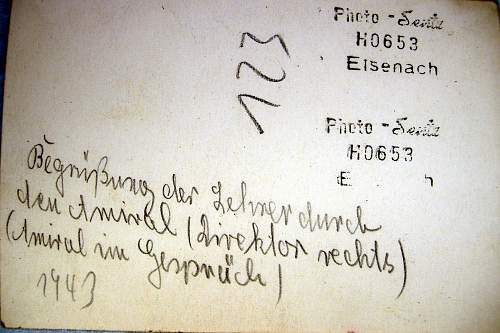 Photo - Sentz
H0653
Eisenach
Photo - Sentz
H0653
E n
Begrüßung der Lehrer durch
den Amiral (Direktor rechts)
(Amiral im Gespräch)
1943